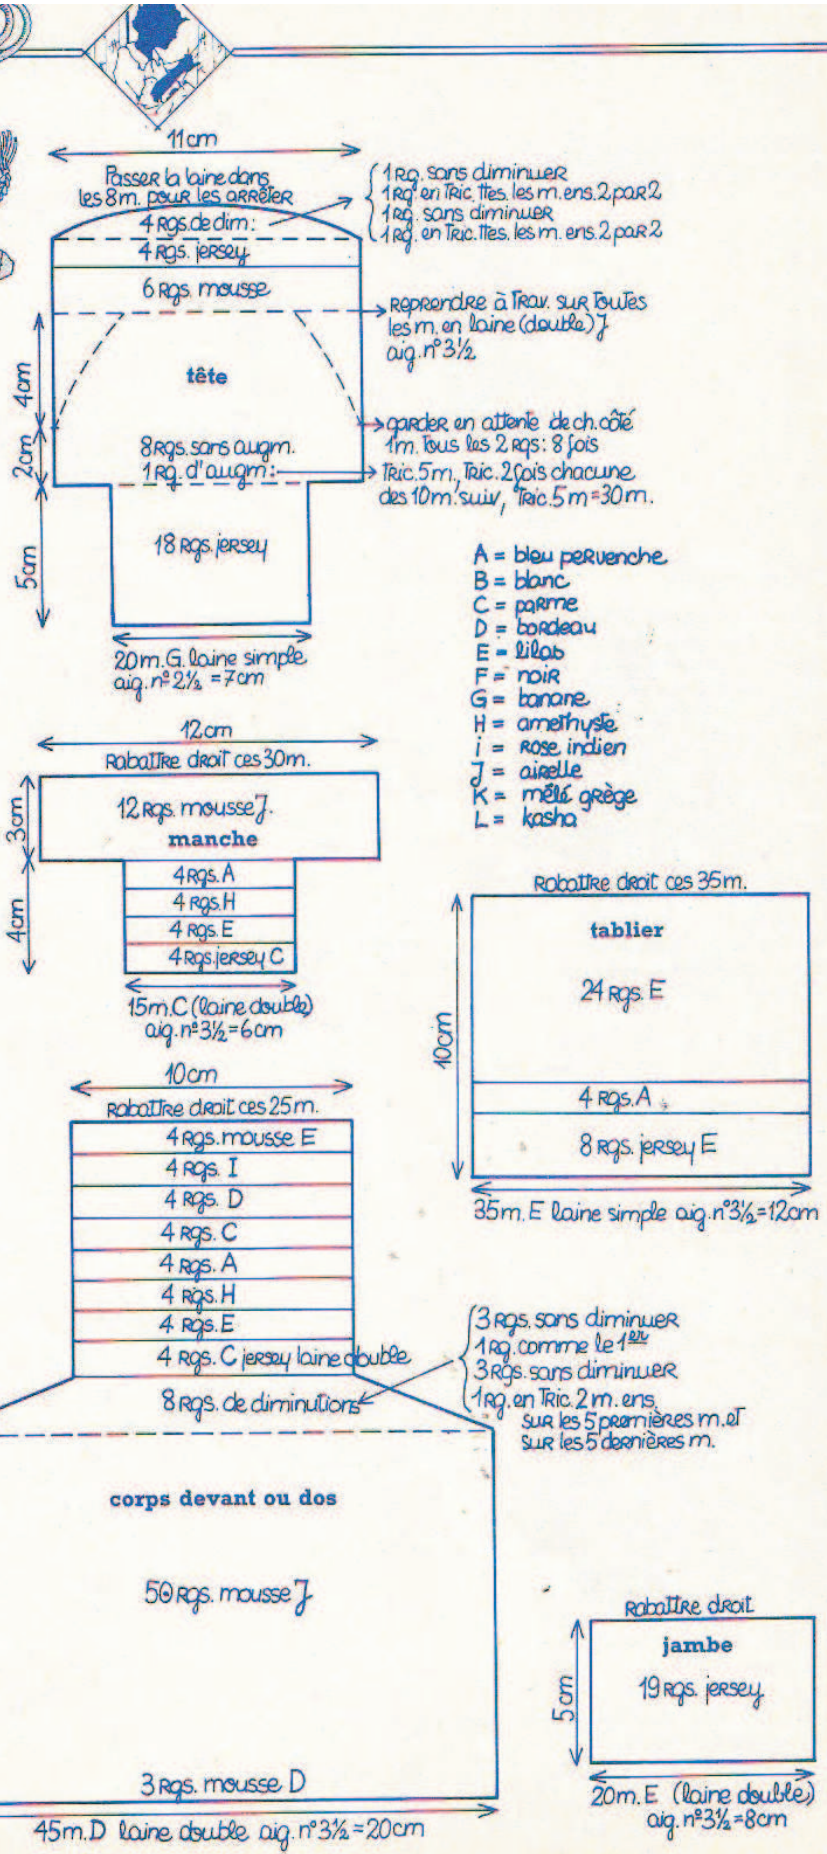 11cm
Passer la laine dans
les 8m. pour les arrêter
4 Rgs. de dim:
1 Rg. sans diminuer
1 Rg. en Tric. ttes. les m. ens. 2 par 2
1 Rg. sans diminuer
1 Rg. en Tric. ttes. les m. ens. 2 par 2
4 Rgs. jersey
6 Rgs. mousse
Reprendre à Trav. sur Toutes
les m. en laine (double) J
aig. n° 3½
4cm
tête
garder en attente de ch. côté
1m. Tous les 2 Rgs: 8 fois
2cm
8 Rgs. sans augm.
1 Rg. d'augm:
Tric. 5m., Tric. 2 fois chacune
des 10m. suiv, Tric. 5m = 30m.
18 Rgs. jersey
5cm
20m. G. laine simple
aig. n° 2½ = 7cm
A = bleu pervenche
B = blanc
C = parme
D = bordeau
E = lilas
F = noir
G = banane
H = amethyste
i = Rose indien
J = airelle
K = mêlé grège
L = kasha
12cm
Rabattre droit ces 30m.
12 Rgs. mousse J.
manche
3cm
4 Rgs. A
4 Rgs. H
4 Rgs. E
4 Rgs. jersey C
4cm
15m. C (laine double)
aig. n° 3½ = 6cm
Rabattre droit ces 35m.
tablier
24 Rgs. E
10cm
4 Rgs. A
8 Rgs. jersey E
35m. E laine simple aig. n° 3½ = 12cm
10cm
Rabattre droit ces 25m.
4 Rgs. mousse E
4 Rgs. I
4 Rgs. D
4 Rgs. C
4 Rgs. A
4 Rgs. H
4 Rgs. E
4 Rgs. C jersey laine double
8 Rgs. de diminutions
3 Rgs. sans diminuer
1 Rg. comme le 1er
3 Rgs. sans diminuer
1 Rg. en Tric. 2 m. ens.
sur les 5 premières m. et
sur les 5 dernières m.
corps devant ou dos
50 Rgs. mousse J
3 Rgs. mousse D
45m. D laine double aig. n° 3½ = 20cm
Rabattre droit
jambe
19 Rgs. jersey
5cm
20m. E (laine double)
aig. n° 3½ = 8cm